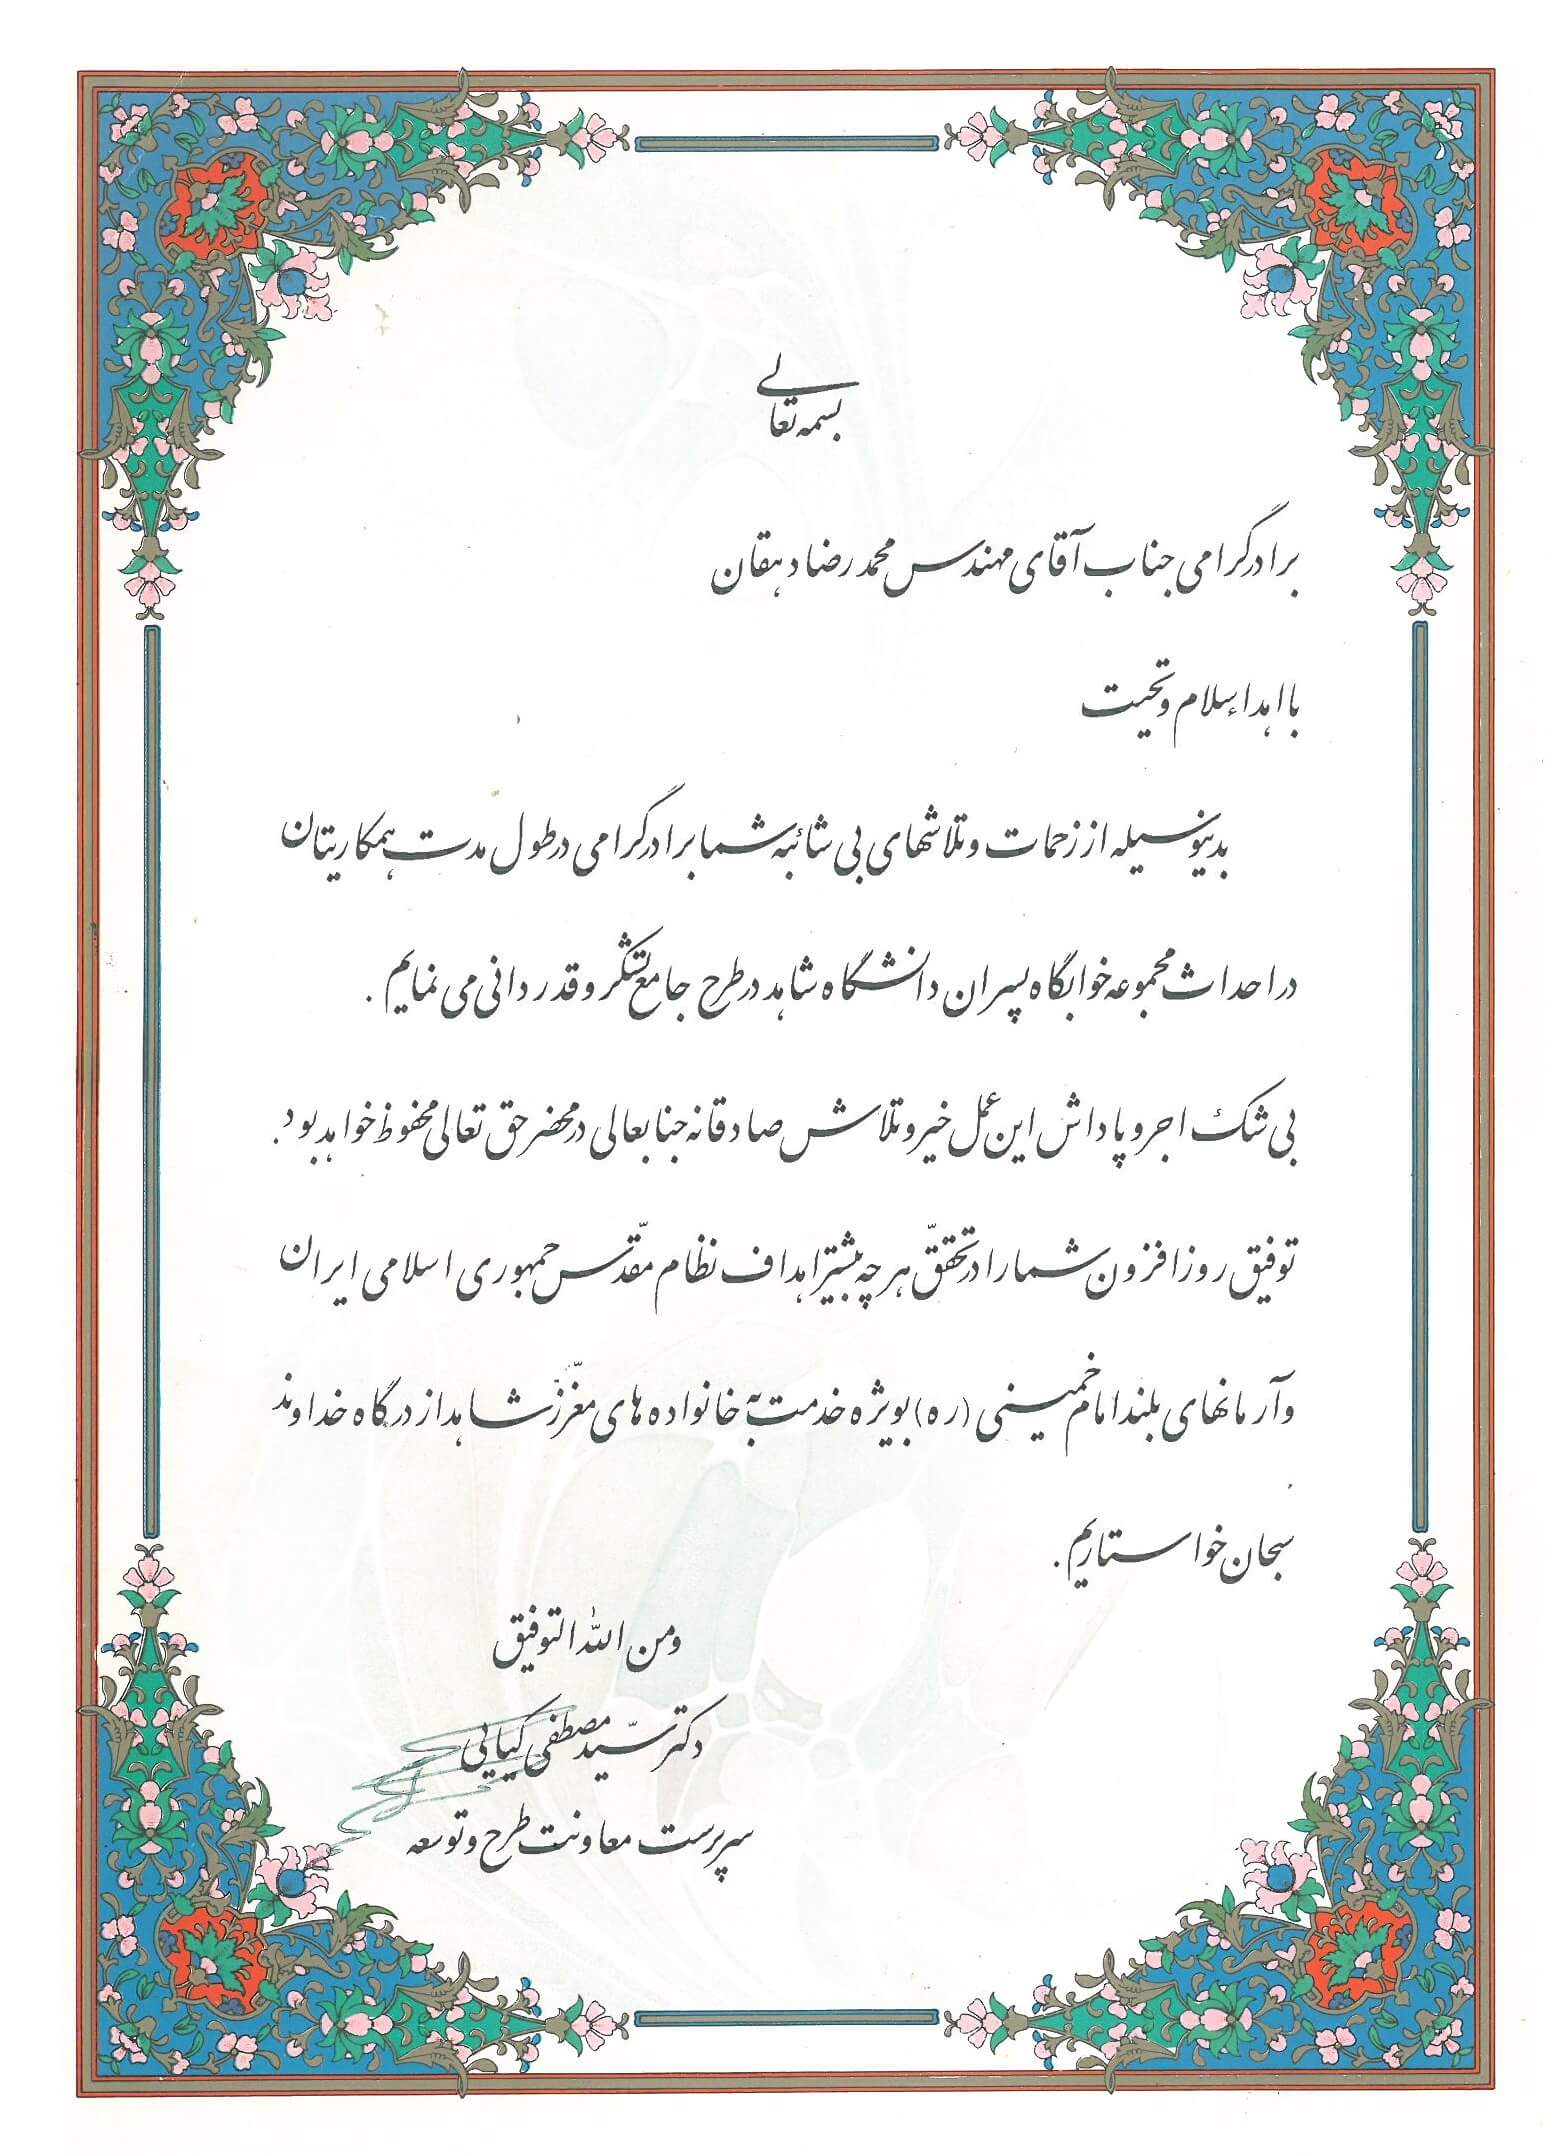 بسمه تعالی
برادر گرامی جناب آقای مهندس محمد رضا دهقان
با اهداء سلام و تحیت
بدینوسیله از زحمات و تلاشهای بی شائبه شما برادر گرامی در طول مدت همکاریتان
در احداث مجموعه خوابگاه پسران دانشگاه شاهد در طرح جامع تشکر و قدردانی می نمایم .
بی شک اجر و پاداش این عمل خیر و تلاش صادقانه جنابعالی در محضر حق تعالی محفوظ خواهد بود .
توفیق روز افزون شما را در تحقّق هر چه بیشتر اهداف نظام مقدّس جمهوری اسلامی ایران
و آرمانهای بلند امام خمینی (ره) بویژه خدمت به خانواده های معزّز شاهد از درگاه خداوند
سبحان خواستاریم .
و من الله التوفیق
دکتر سیّد مصطفی کیایی
سرپرست معاونت طرح و توسعه